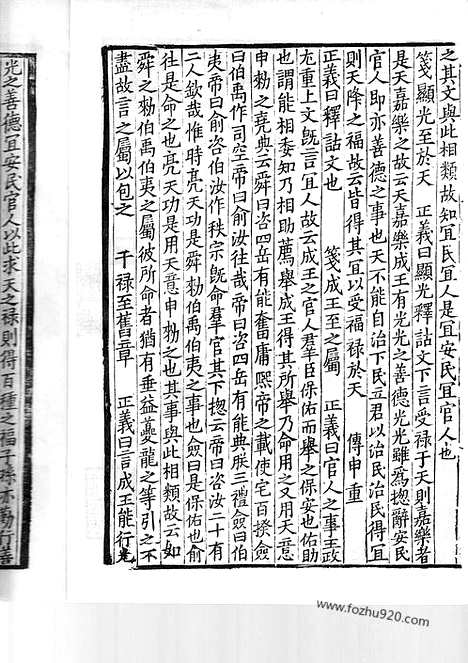 之其文與此相類故知宜民宜人是宜安民宜官人也
箋顯光至於天　正義曰顯光釋詁文下言受禄于天則嘉樂者
是天嘉樂之故云天嘉樂成王有光光之善德光光雖爲揔辭安民
官人即亦善德之事也天不能自治下民立君以治民治民得宜
則天降之福故云皆得其宜以受福禄於天　傳申重
正義曰釋詁文也　箋成王至之屬　正義曰官人之事王政
尤重上文旣言宜人故云成王之官人羣臣保佑而舉之保安也佑助
也謂能相委知乃相助薦舉成王得其所舉乃命用之又用天意
申勑之堯典云舜曰咨四岳有能奮庸熈帝之載使宅百揆僉
曰伯禹作司空帝曰俞汝往哉帝曰咨四岳有能典朕三禮僉曰伯
夷帝曰俞咨伯汝作秩宗旣命羣官其下揔云帝曰咨汝二十有
二人欽哉惟時亮天功是舜勑伯禹伯夷之事也僉曰是保佑也俞
往是命之也亮天功是用天意申勑之也其事與此相類故云如
舜之勑伯禹伯夷之屬彼所命者猶有垂益夔龍之等引之不
盡故言之屬以包之　干禄至舊章　正義曰言成王能行光
光之善德宜安民官人以此求天之禄則得百種之福子孫亦勤行善
www.fozhu920.com